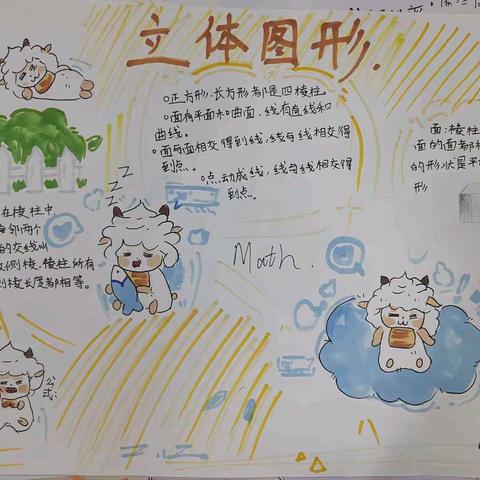 立体图形.
○正方形,长方形都是四棱柱.
○面有平面和曲面,线有直线和
曲线。
○面与面相交得到线,线与线相交得
到点。
○点动成线,线与线相交得
到点。
面:棱柱
面的面都
的形状是平
形
在棱柱中,
邻两个
的交线叫
侧棱,棱柱所有
侧棱长度都相等。
zzz
Math.
公式: